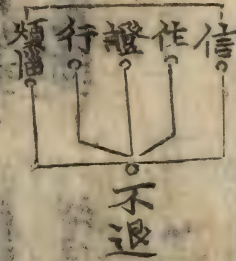 信
作
證
行
煩惱
不退